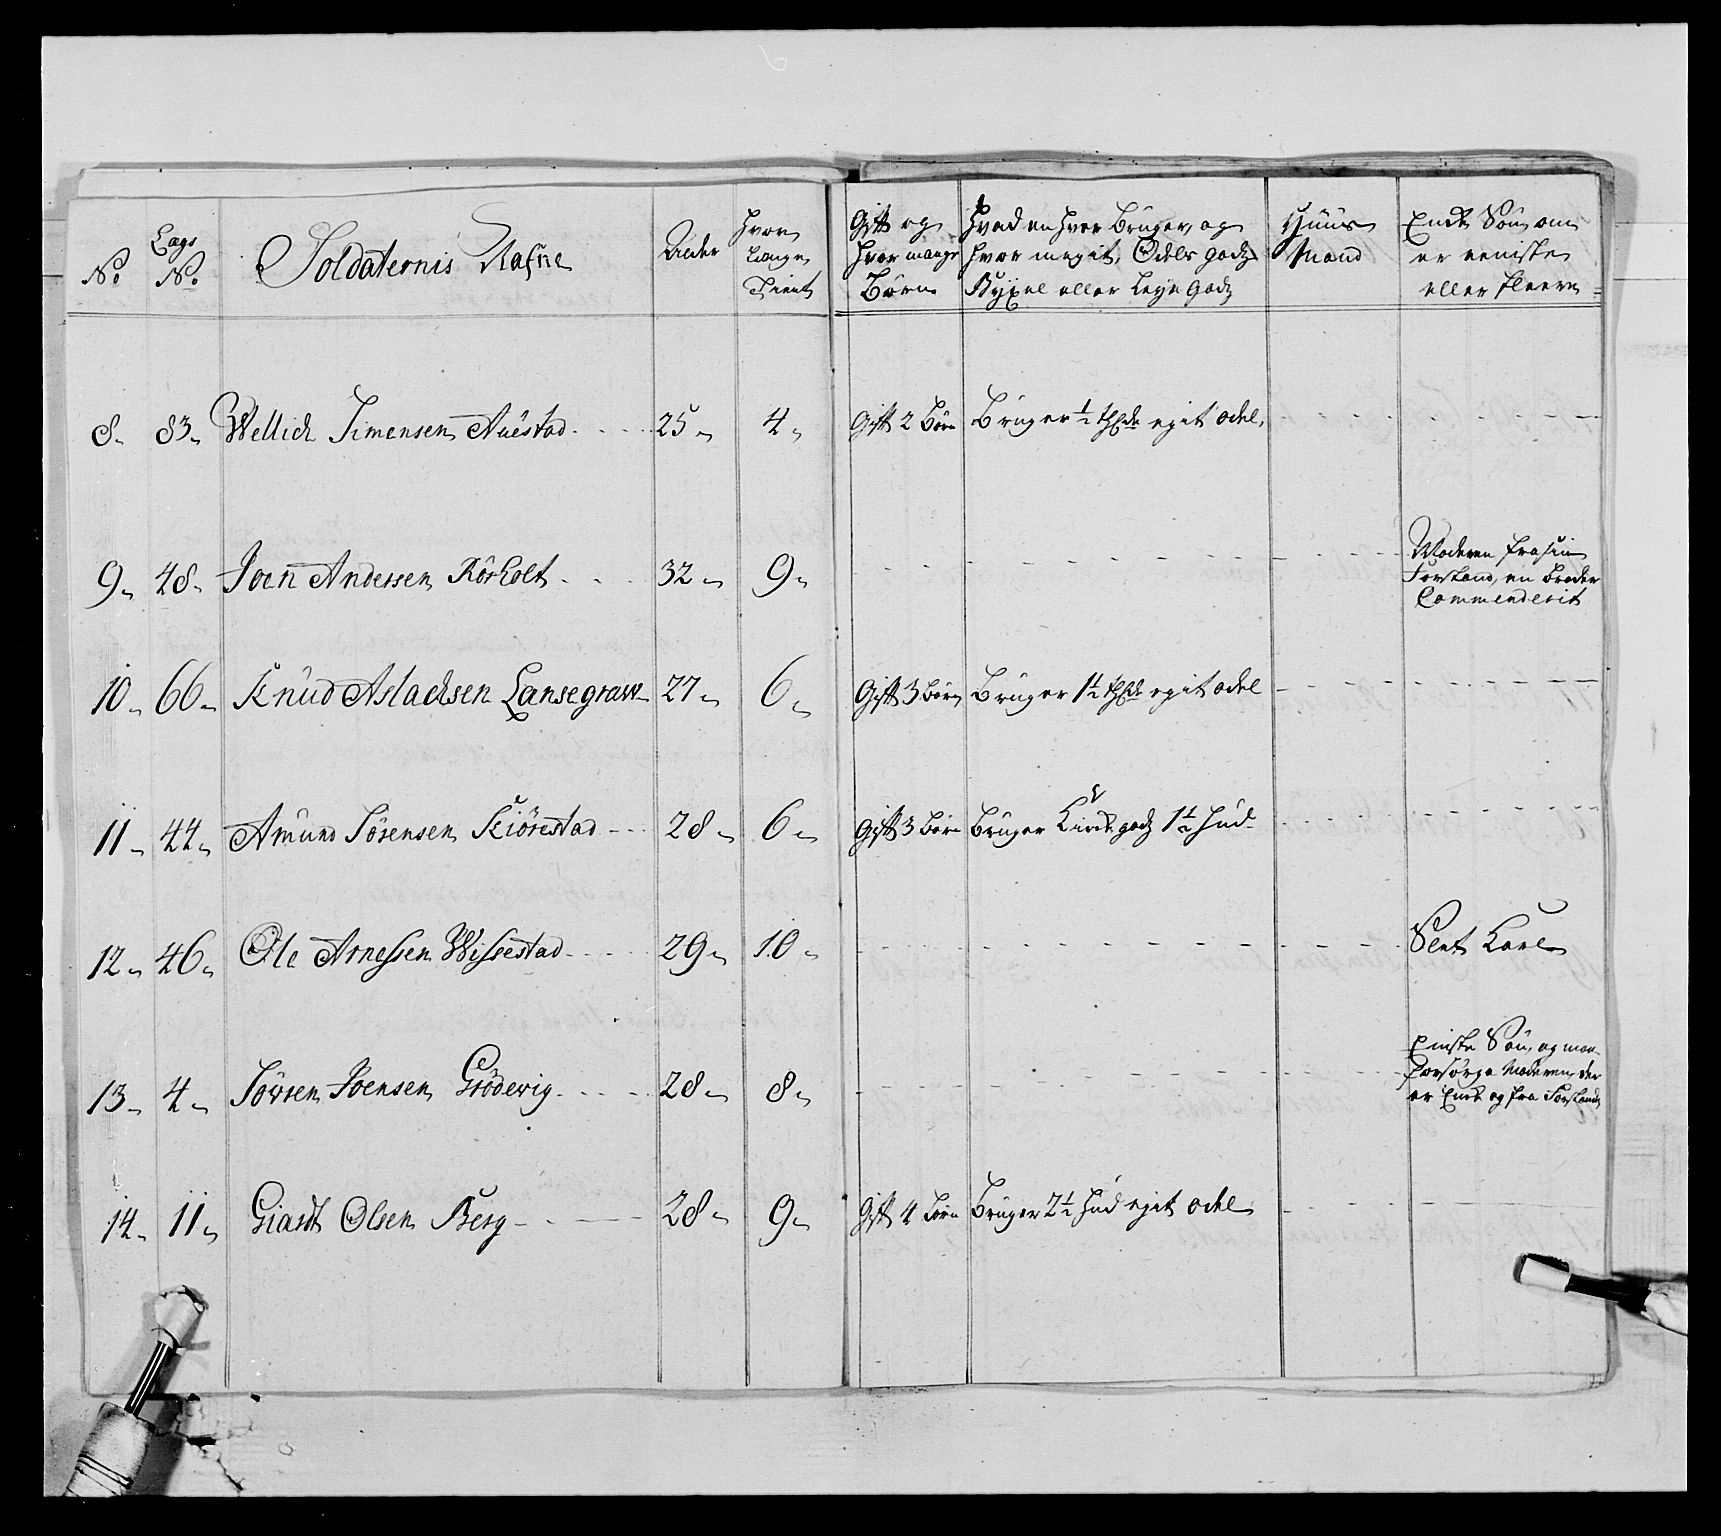 No. Lægs No. Soldaternis Nafne Alder Hvor Længe Tient Gift og hvor mange Børn Hvad en hver Brüger og hvor megit, Odels godz Byxel eller Leye Godz Huus Mand Encke Søn, om er eeniste eller fleere
8. 83. Wellich Simensen Auestad 25. 4. Gift 2 Børn Brüger ½ eget odel.
9. 48. Joen Andersen Rørholt 32. 9. Moderen fra sin Forstand, en Broder Commenderit
10. 66. Knud Aslachsen Lansegraw 27. 6. Gift 3 Børn Brüger 1½ egit odel
11. 44. Amund Sørensen Kiørestad 28. 6. Gift 3 Børn Brüger Kircke godz 1½ Hud
12. 46. Ole Arnessen Wissestad 29. 10. Slet Karl
13. 4. Sørren Joensen Grødewig 28. 8. Eniste Søn, og maa forsørge Moderen, der er Encke og fra Forstand
14. 11. Giardt Olsen Berg 28. 9. Gift 4 Børn Brüger 2½ Hud egit odel